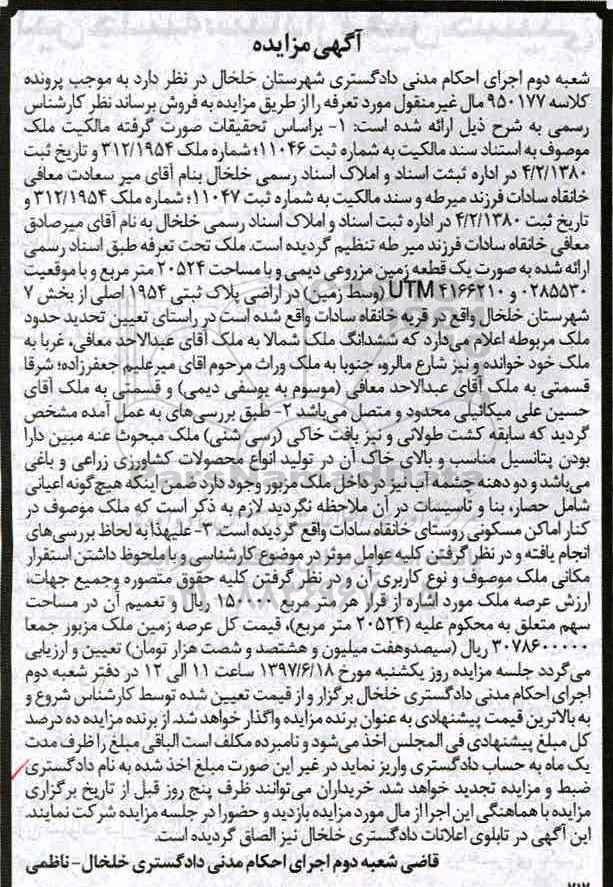 آگهی مزایده
شعبه دوم اجرای احکام مدنی دادگستری شهرستان خلخال در نظر دارد به موجب پرونده
کلاسه ۹۵۰۱۷۷ مال غیرمنقول مورد تعرفه را از طریق مزایده به فروش برساند نظر کارشناس
رسمی به شرح ذیل ارائه شده است: ۱- براساس تحقیقات صورت گرفته مالکیت ملک
موصوف به استناد سند مالکیت به شماره ثبت ۱۱۰۴۶؛ شماره ملک ۳۱۲/۱۹۵۴ و تاریخ ثبت
۴/۲/۱۳۸۰ در اداره ثبت اسناد و املاک اسناد رسمی خلخال بنام آقای میر سعادت معافی
خانقاه سادات فرزند میرطه و سند مالکیت به شماره ثبت ۱۱۰۴۷؛ شماره ملک ۳۱۲/۱۹۵۴ و
تاریخ ثبت ۴/۲/۱۳۸۰ در اداره ثبت اسناد و املاک اسناد رسمی خلخال به نام آقای میرصادق
معافی خانقاه سادات فرزند میر طه تنظیم گردیده است. ملک تحت تعرفه طبق اسناد رسمی
ارائه شده به صورت یک قطعه زمین مزروعی دیمی و با مساحت ۲۰۵۲۴ متر مربع و با موقعیت
۰۲۸۵۵۳۰ و ۴۱۶۶۲۱۰ UTM (وسط زمین) در اراضی پلاک ثبتی ۱۹۵۴ اصلی از بخش ۷
شهرستان خلخال واقع در قریه خانقاه سادات واقع شده است در راستای تعیین تحدید حدود
ملک مربوطه اعلام می‌دارد که ششدانگ ملک شمالا به ملک آقای عبدالاحد معافی، غربا به
ملک خود خوانده و نیز شارع مالرو، جنوبا به ملک وراث مرحوم اقای میرعلیم جعفرزاده؛ شرقا
قسمتی به ملک آقای عبدالاحد معافی (موسوم به یوسفی دیمی) و قسمتی به ملک آقای
حسین علی میکائیلی محدود و متصل می‌باشد ۲- طبق بررسی‌های به عمل آمده مشخص
گردید که سابقه کشت طولانی و نیز بافت خاکی (رسی شنی) ملک مبحوث عنه مبین دارا
بودن پتانسیل مناسب و بالای خاک آن در تولید انواع محصولات کشاورزی زراعی و باغی
می‌باشد و دو دهنه چشمه آب نیز در داخل ملک مزبور وجود دارد ضمن اینکه هیچ‌گونه اعیانی
شامل حصار، بنا و تاسیسات در آن ملاحظه نگردید لازم به ذکر است که ملک موصوف در
کنار اماکن مسکونی روستای خانقاه سادات واقع گردیده است. ۳- علیهذا به لحاظ بررسی‌های
انجام یافته و در نظر گرفتن کلیه عوامل موثر در موضوع کارشناسی و با ملحوظ داشتن استقرار
مکانی ملک موصوف و نوع کاربری آن و در نظر گرفتن کلیه حقوق متصوره وجمیع جهات،
ارزش عرصه ملک مورد اشاره از قرار هر متر مربع ۱۵۰۰۰۰ ریال و تعمیم آن در مساحت
سهم متعلق به محکوم علیه (۲۰۵۲۴ متر مربع)، قیمت کل عرصه زمین ملک مزبور جمعا
۳۰۷۸۶۰۰۰۰۰ ریال (سیصدوهفت میلیون و هشتصد و شصت هزار تومان) تعیین و ارزیابی
می‌گردد جلسه مزایده روز یکشنبه مورخ ۱۳۹۷/۶/۱۸ ساعت ۱۱ الی ۱۲ در دفتر شعبه دوم
اجرای احکام مدنی دادگستری خلخال برگزار و از قیمت تعیین شده توسط کارشناس شروع و
به بالاترین قیمت پیشنهادی به عنوان برنده مزایده واگذار خواهد شد. از برنده مزایده ده درصد
کل مبلغ پیشنهادی فی المجلس اخذ می‌شود و نامبرده مکلف است الباقی مبلغ را ظرف مدت
یک ماه به حساب دادگستری واریز نماید در غیر این صورت مبلغ اخذ شده به نام دادگستری
ضبط و مزایده تجدید خواهد شد. خریداران می‌توانند ظرف پنج روز قبل از تاریخ برگزاری
مزایده با هماهنگی این اجرا از مال مورد مزایده بازدید و حضورا در جلسه مزایده شرکت نمایند.
این آگهی در تابلوی اعلانات دادگستری خلخال نیز الصاق گردیده است.
قاضی شعبه دوم اجرای احکام مدنی دادگستری خلخال - ناظمی